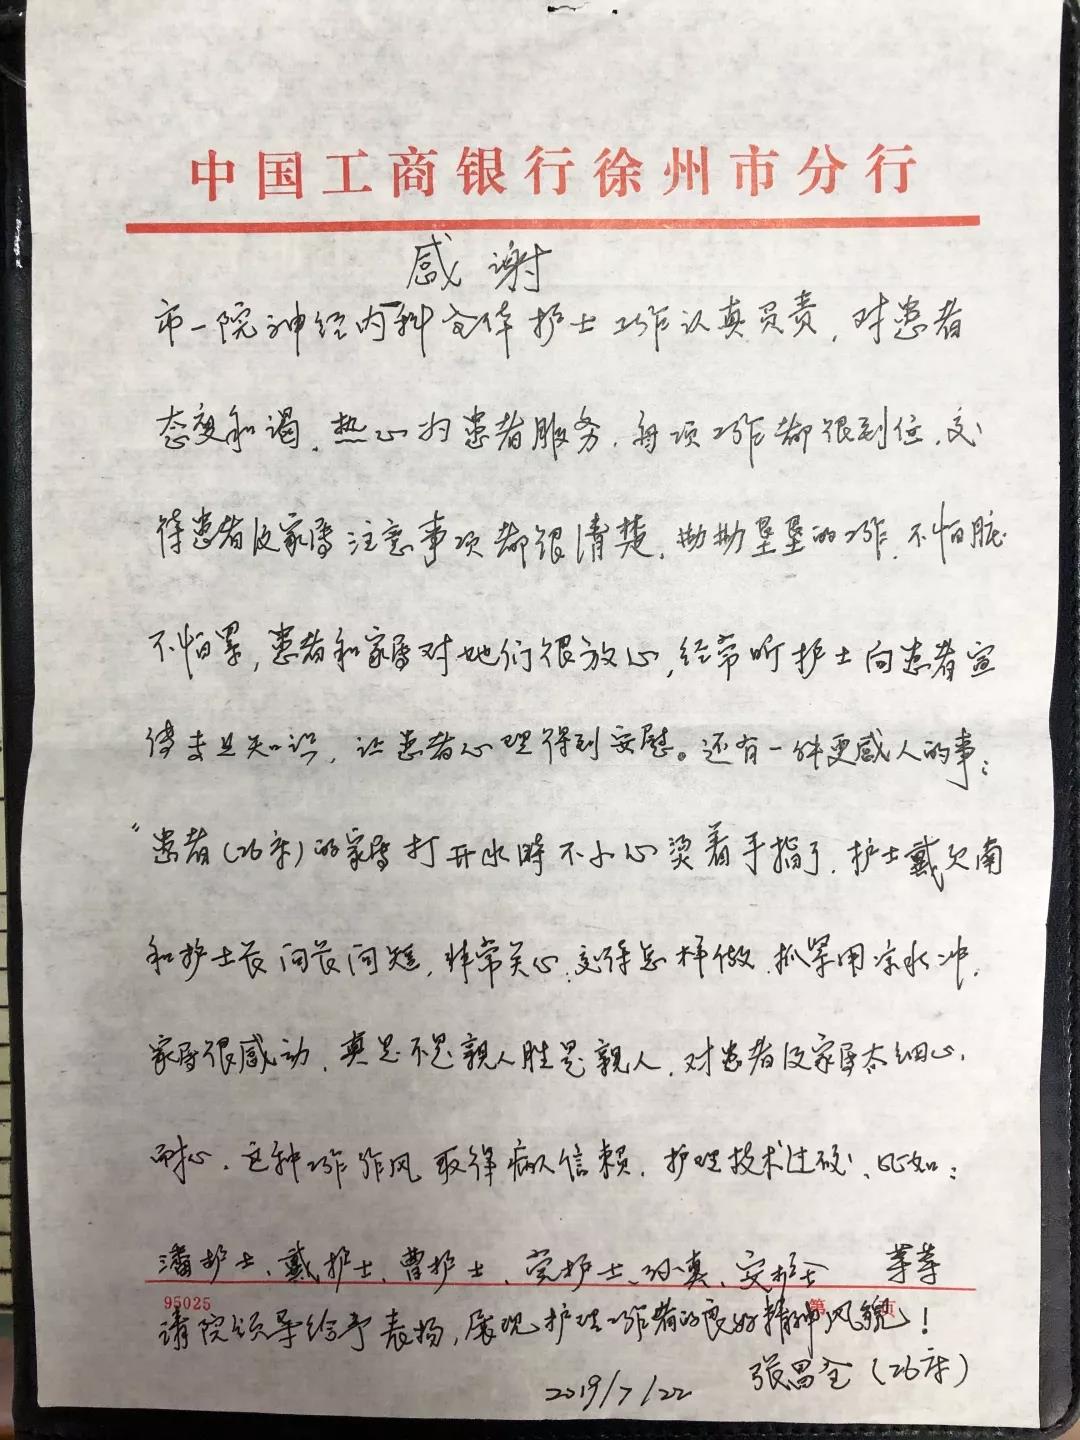 中国工商银行徐州市分行
感谢
市一院神经内科全体护士工作认真负责，对患者
态度和谒，热心为患者服务，每项工作都很到位，交
待患者及家属注意事项都很清楚，勤勤垦垦的工作，不怕脏
不怕累，患者和家属对她们很放心，经常听护士向患者宣
传专业知识，让患者心理得到安慰。还有一件更感人的事：
“患者（26床）的家属打开水时不小心烫着手指了，护士戴久南
和护士长问长问短，非常关心，交待怎样做，抓紧用凉水冲，
家属很感动，真是不是亲人胜是亲人，对患者及家属太细心，
耐心，这种工作作风取得病人信赖，护理技术过硬、比如：
潘护士、戴护士、曹护士、党护士、孙真、安护士 等等
95025 第 页
请院领导给予表扬，展现护理工作者的良好精神风貌！
张昌全（26床）
2019/7/22